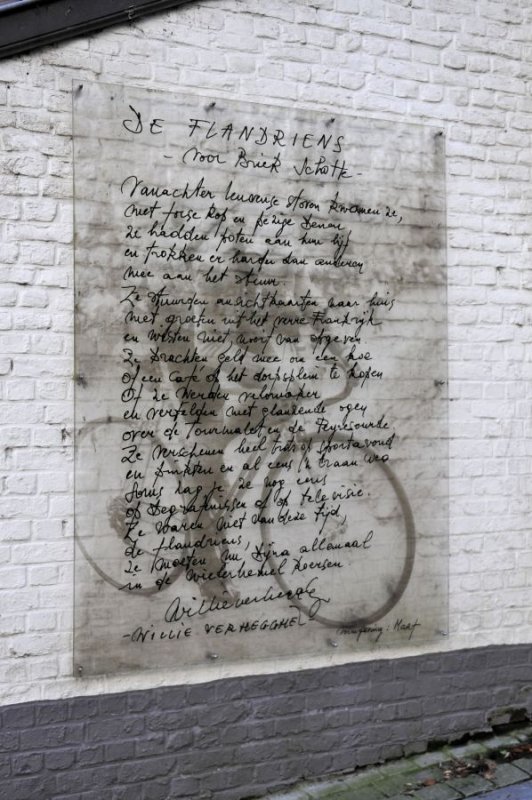 DE FLANDRIENS
- voor Briek Schotte
Vanachter Leuvense stoven kwamen ze,
met forse kop en pezige benen
ze hadden poten aan hun lijf
en trokken er harder dan anderen
mee aan het stuur.
Ze stuurden ansichtkaarten naar huis
met groeten uit het verre Frankrijk
en wisten niet, nooit van opgeven
Ze brachten geld mee om een koe
of een café op het dorpsplein te kopen
Of ze werden velomaker
en vertelden met glanzende ogen
over de Tourmalet en de Peyresourde
Ze verschenen heel trots op sportavond
en dronken en al eens 'n traan weg
Soms zag je ze nog eens
op begrafenissen of op televisie.
Ze waren niet van deze tijd,
de flandriens,
ze moeten nu bijna allemaal
in de Wielerhemel koersen.
Willie Verhegghe
- WILLIE VERHEGGHE -